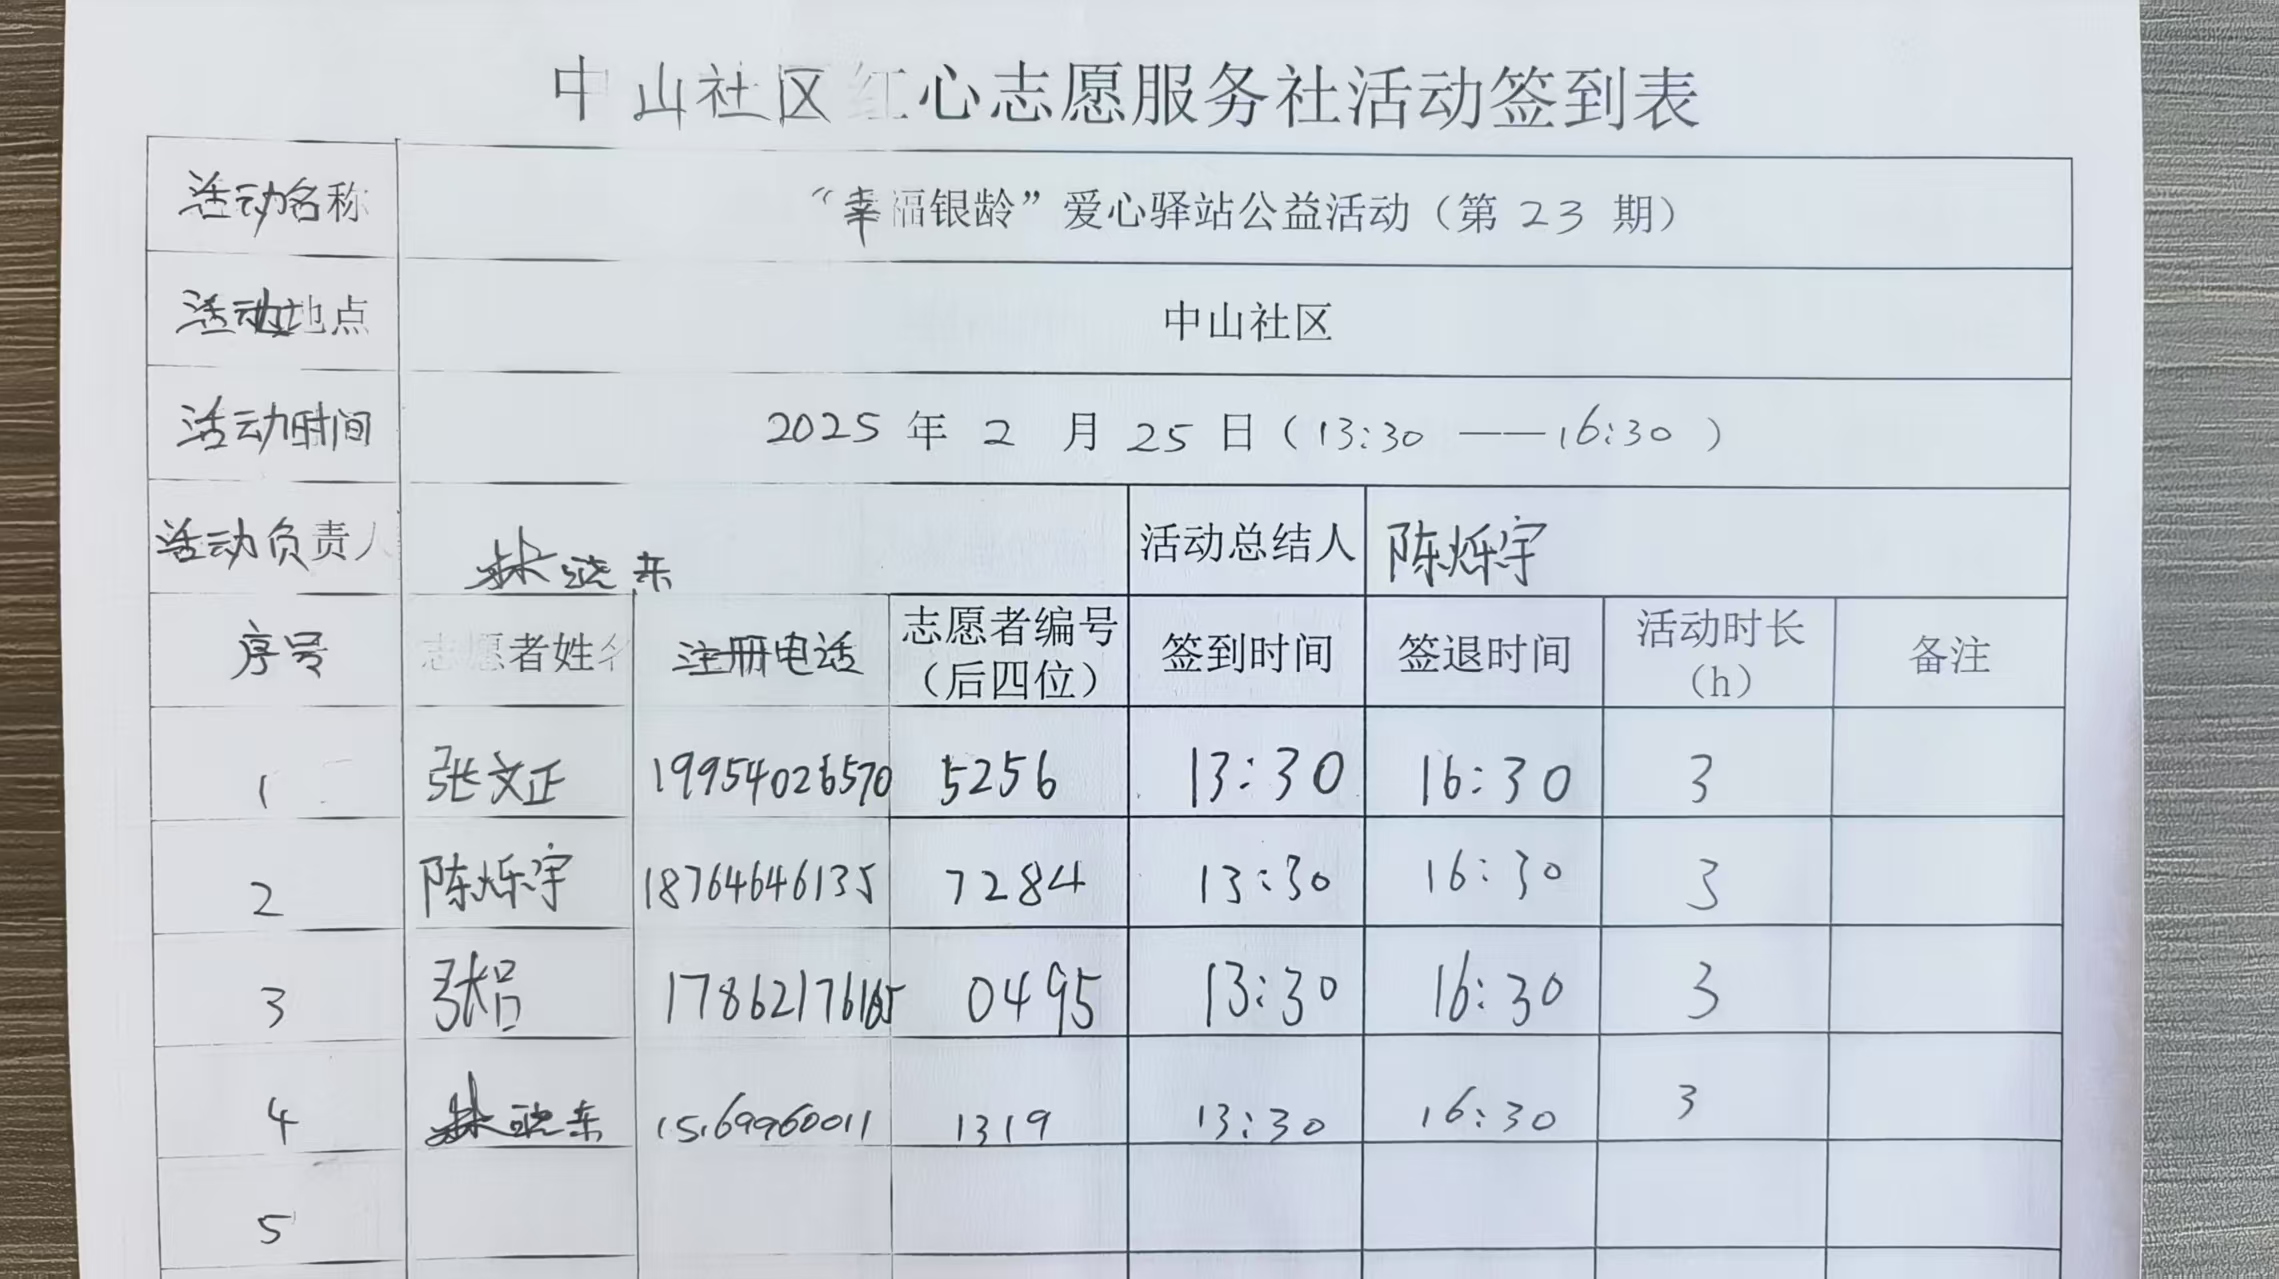 中山社区红心志愿服务社活动签到表
活动名称 “幸福银龄”爱心驿站公益活动（第 23 期）
活动地点 中山社区
活动时间 2025 年 2 月 25 日（13:30 ——16:30 ）
活动负责人 林晓东 活动总结人 陈烁宇
序号 志愿者姓名 注册电话 志愿者编号（后四位） 签到时间 签退时间 活动时长（h） 备注
1 张文正 19954026570 5256 13:30 16:30 3
2 陈烁宇 18764646135 7284 13:30 16:30 3
3 张吕 0495 13:30 16:30 3
4 林晓东 15169960011 1319 13:30 16:30 3
5